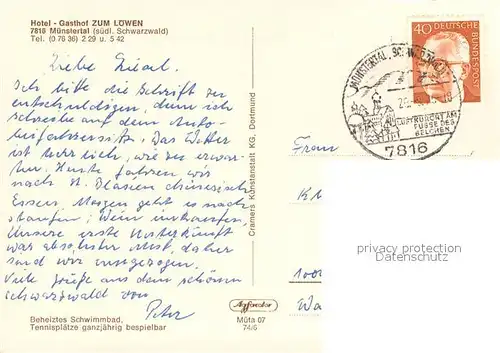 Hotel - Gasthof ZUM LÖWEN
7816 Münstertal (südl. Schwarzwald)
Tel. (0 76 36) 2 29 u. 5 42
Liebe Gisel.
Ich bitte die Schrift zu
entschuldigen, denn ich
schreibe auf dem Auto-
beifahrersitz. Das Wetter
ist herrlich, wie zu erwar-
ten. Heute fahren wir
nach St. Blasien chinesisch
Essen. Morgen geht es nach
Staufen; Wein einkaufen.
Unsere erste Unterkunft
war absoluter Mist, daher
sind wir umgezogen.
Viele Grüße aus dem schönen
Schwarzwald von
Peter
Beheiztes Schwimmbad,
Tennisplätze ganzjährig bespielbar
Cramers Kunstanstalt KG, Dortmund
Agfacolor
Müta 07
74/6
MÜNSTERTAL, SCHWARZWALD
LUFTKURORT AM
FUSSE DES
BELCHEN
7816
40
DEUTSCHE
BUNDESPOST
Frau
privacy protection
Datenschutz
1000